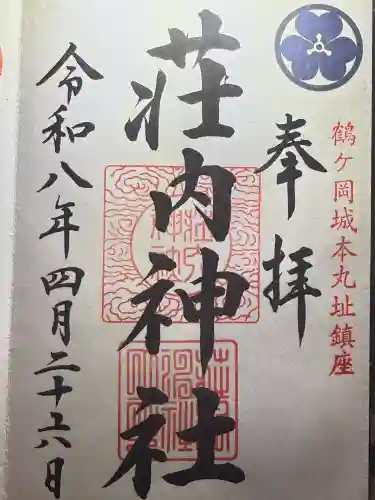 鶴ケ岡城本丸址鎮座
奉拝
荘内神社
令和八年四月二十六日